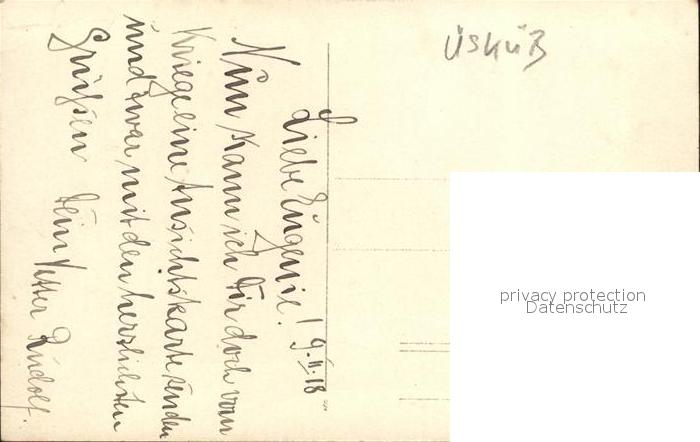 ÜSKÜB
Liebe Eugenie! 9.II.18
Nun kann ich Dir doch vom
Kriege eine Ansichtskarte senden
und zwar mit den herzlichsten
Grüßen Dein Vetter Rudolf.
privacy protection
Datenschutz